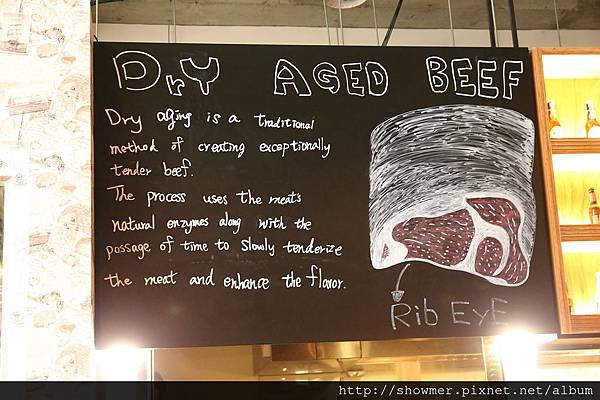 DrY AGED BEEF
Dry aging is a traditional
method of creating exceptionally
tender beef.
The process uses the meat's
natural enzymes along with the
passage of time to slowly tenderize
the meat and enhance the flavor.
Rib EyE
http://showmer.pixnet.net/album